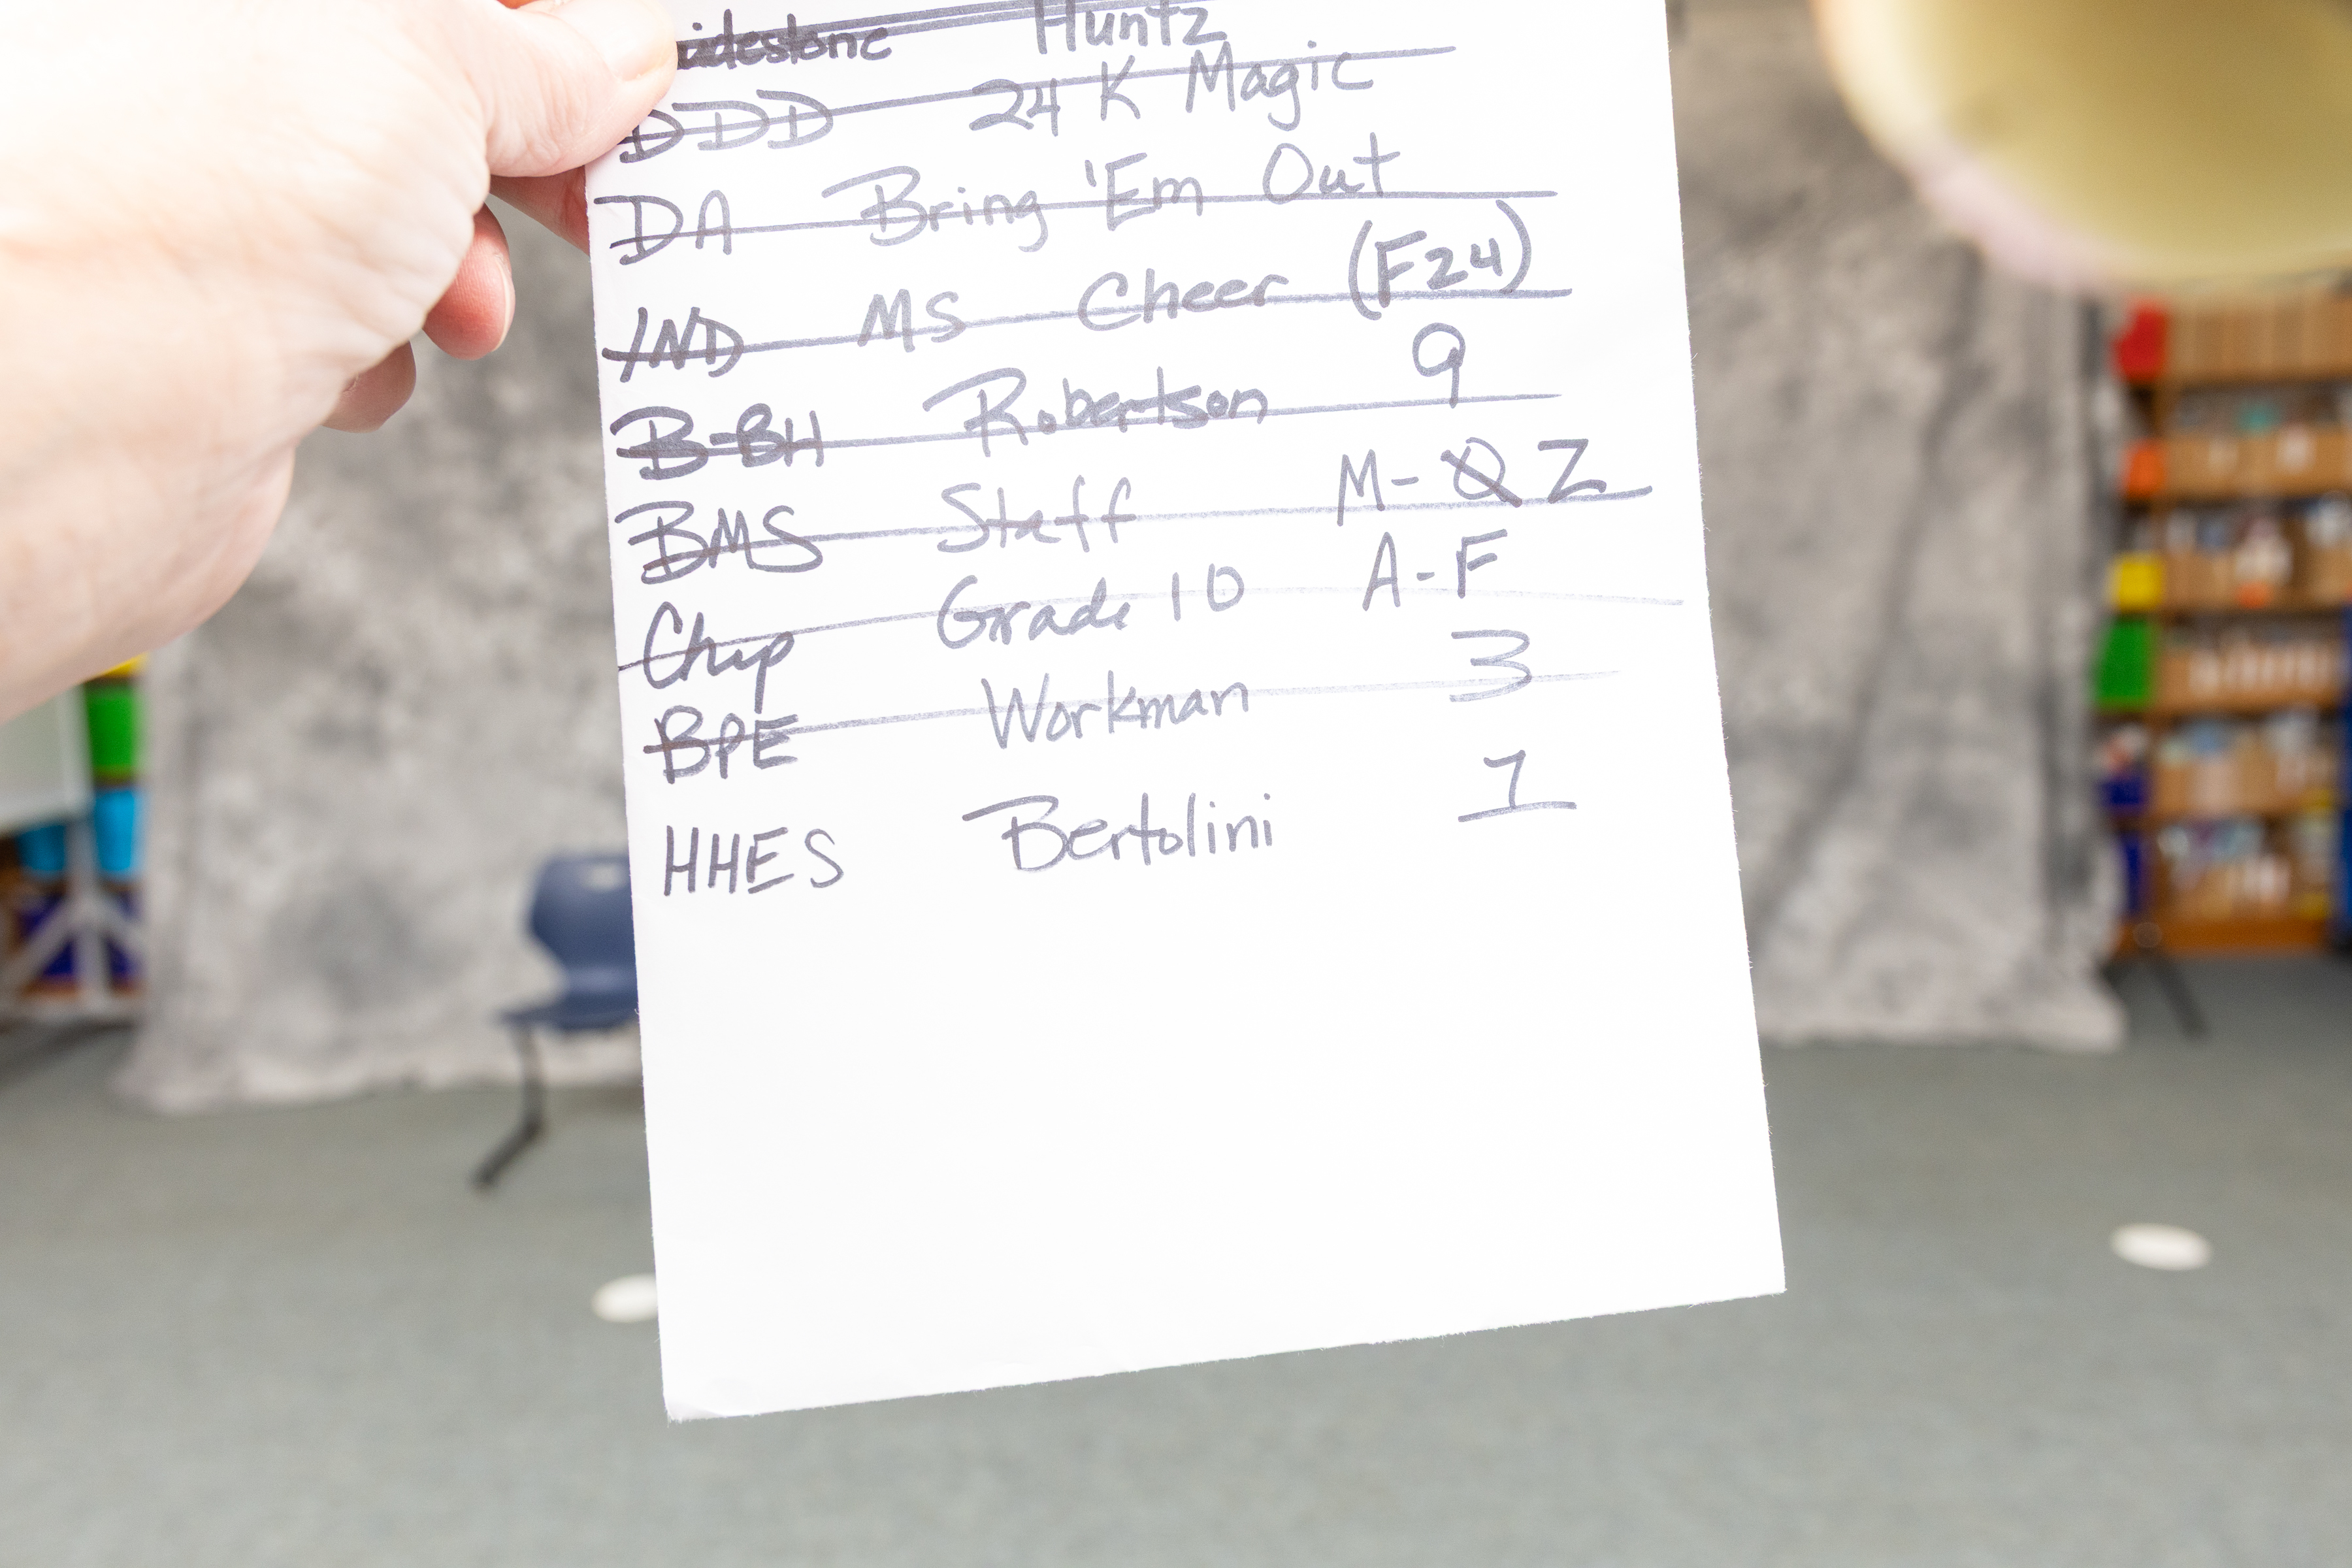 idestone Huntz
DDD 24 K Magic
DA Bring 'Em Out
IND MS Cheer (F24)
B-BH Robertson 9
BMS Staff M-Q Z
Chip Grade 10 A-F
BPE Workman 3
HHES Bertolini 1